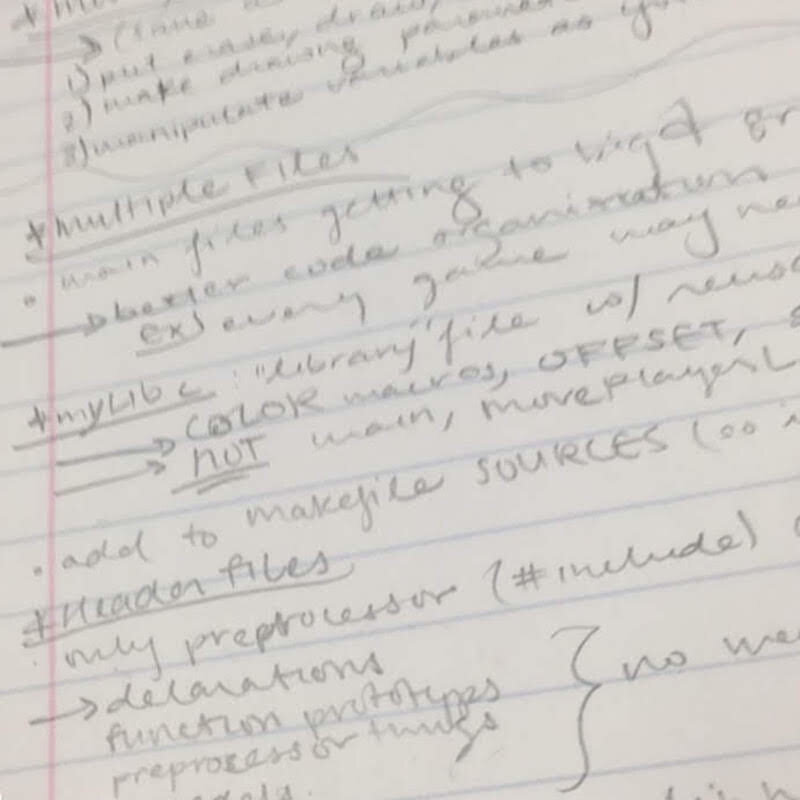 1) put erase, draw,
2) make drawing
3) manipulate variables as
* Multiple Files
• main files getting to big
→ better code organization
ex) every game may
* myLib.c : "library" file w/
→ COLOR macros, OFFSET,
→ NOT main, movePlayer
• add to makefile SOURCES (
* Header files
• only preprocessor (#include)
→ declarations
function prototyps
preprocessor things
} no